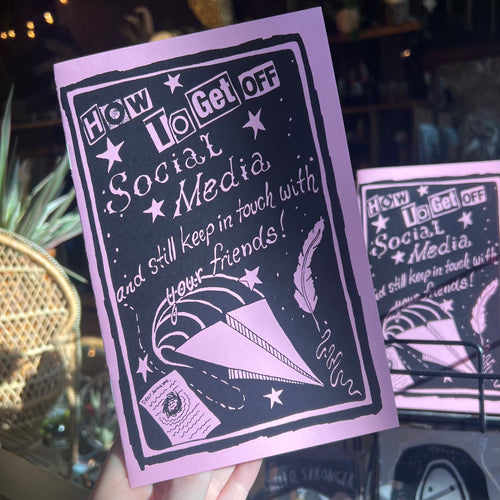 HOW
To Get OFF
Social
Media
and still keep in touch with
your friends!
HOW To Get OFF
Social
Media
and still keep in touch with
your friends!
STRONGER